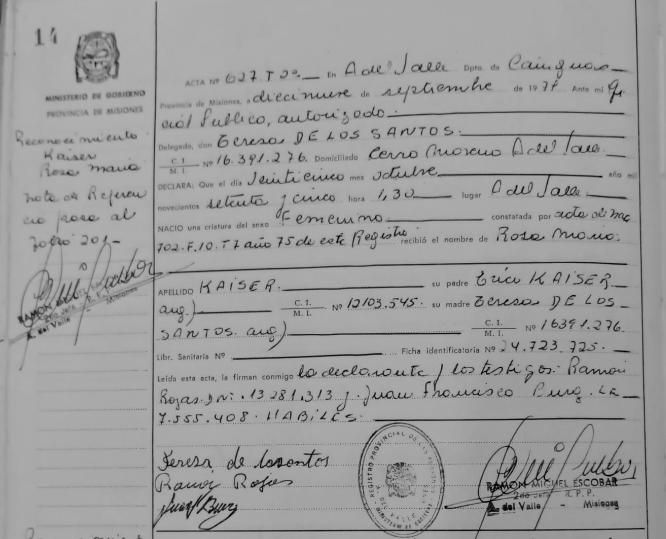 14
MINISTERIO DE GOBIERNO
PROVINCIA DE MISIONES
Reconocimiento
Kaiser
Rosa Maria
nota de Referen
cia pasa al
folio 201-
RAMON MIGUEL
2do Jefe R. P. P.
A. del Valle - Misiones
ACTA Nº 627. T 2º. En A del Valle Dpto. de Cainguas
Provincia de Misiones, a diecinueve de septiembre de 197 Ante mí
cial Publico, autorizado.
Delegado, don Teresa DE LOS SANTOS.
C. I.
M. I. Nº 16.391.276. Domiciliado Cerro Moreno A del Valle
DECLARA: Que el día veinticinco mes octubre año mil
novecientos setenta y cinco hora 1,30 lugar A del Valle
NACIO una criatura del sexo Femenino constatada por acta de
702. F. 10. T 7 año 75 de este Registro recibió el nombre de Rosa Maria.
APELLIDO KAISER. su padre Erico KAISER.
arg) C. I.
M. I. Nº 12103.545. su madre Teresa DE LOS
SANTOS. arg) C. I.
M. I. Nº 16391.276.
Libr. Sanitaria Nº Ficha identificatoria Nº 24.723.725.
Leída esta acta, la firman conmigo la declarante y los testigos: Ramon
Rojas. DNI. 13281.313 y Juan Francisco Burg. LE
7.555.408. HABILES.
Teresa de losantos
Ramon Rojas
Juan Burg
REGISTRO PROVINCIAL DE LAS PERSONAS
RAMON MIGUEL ESCOBAR
2do Jefe R. P. P.
A. del Valle - Misiones